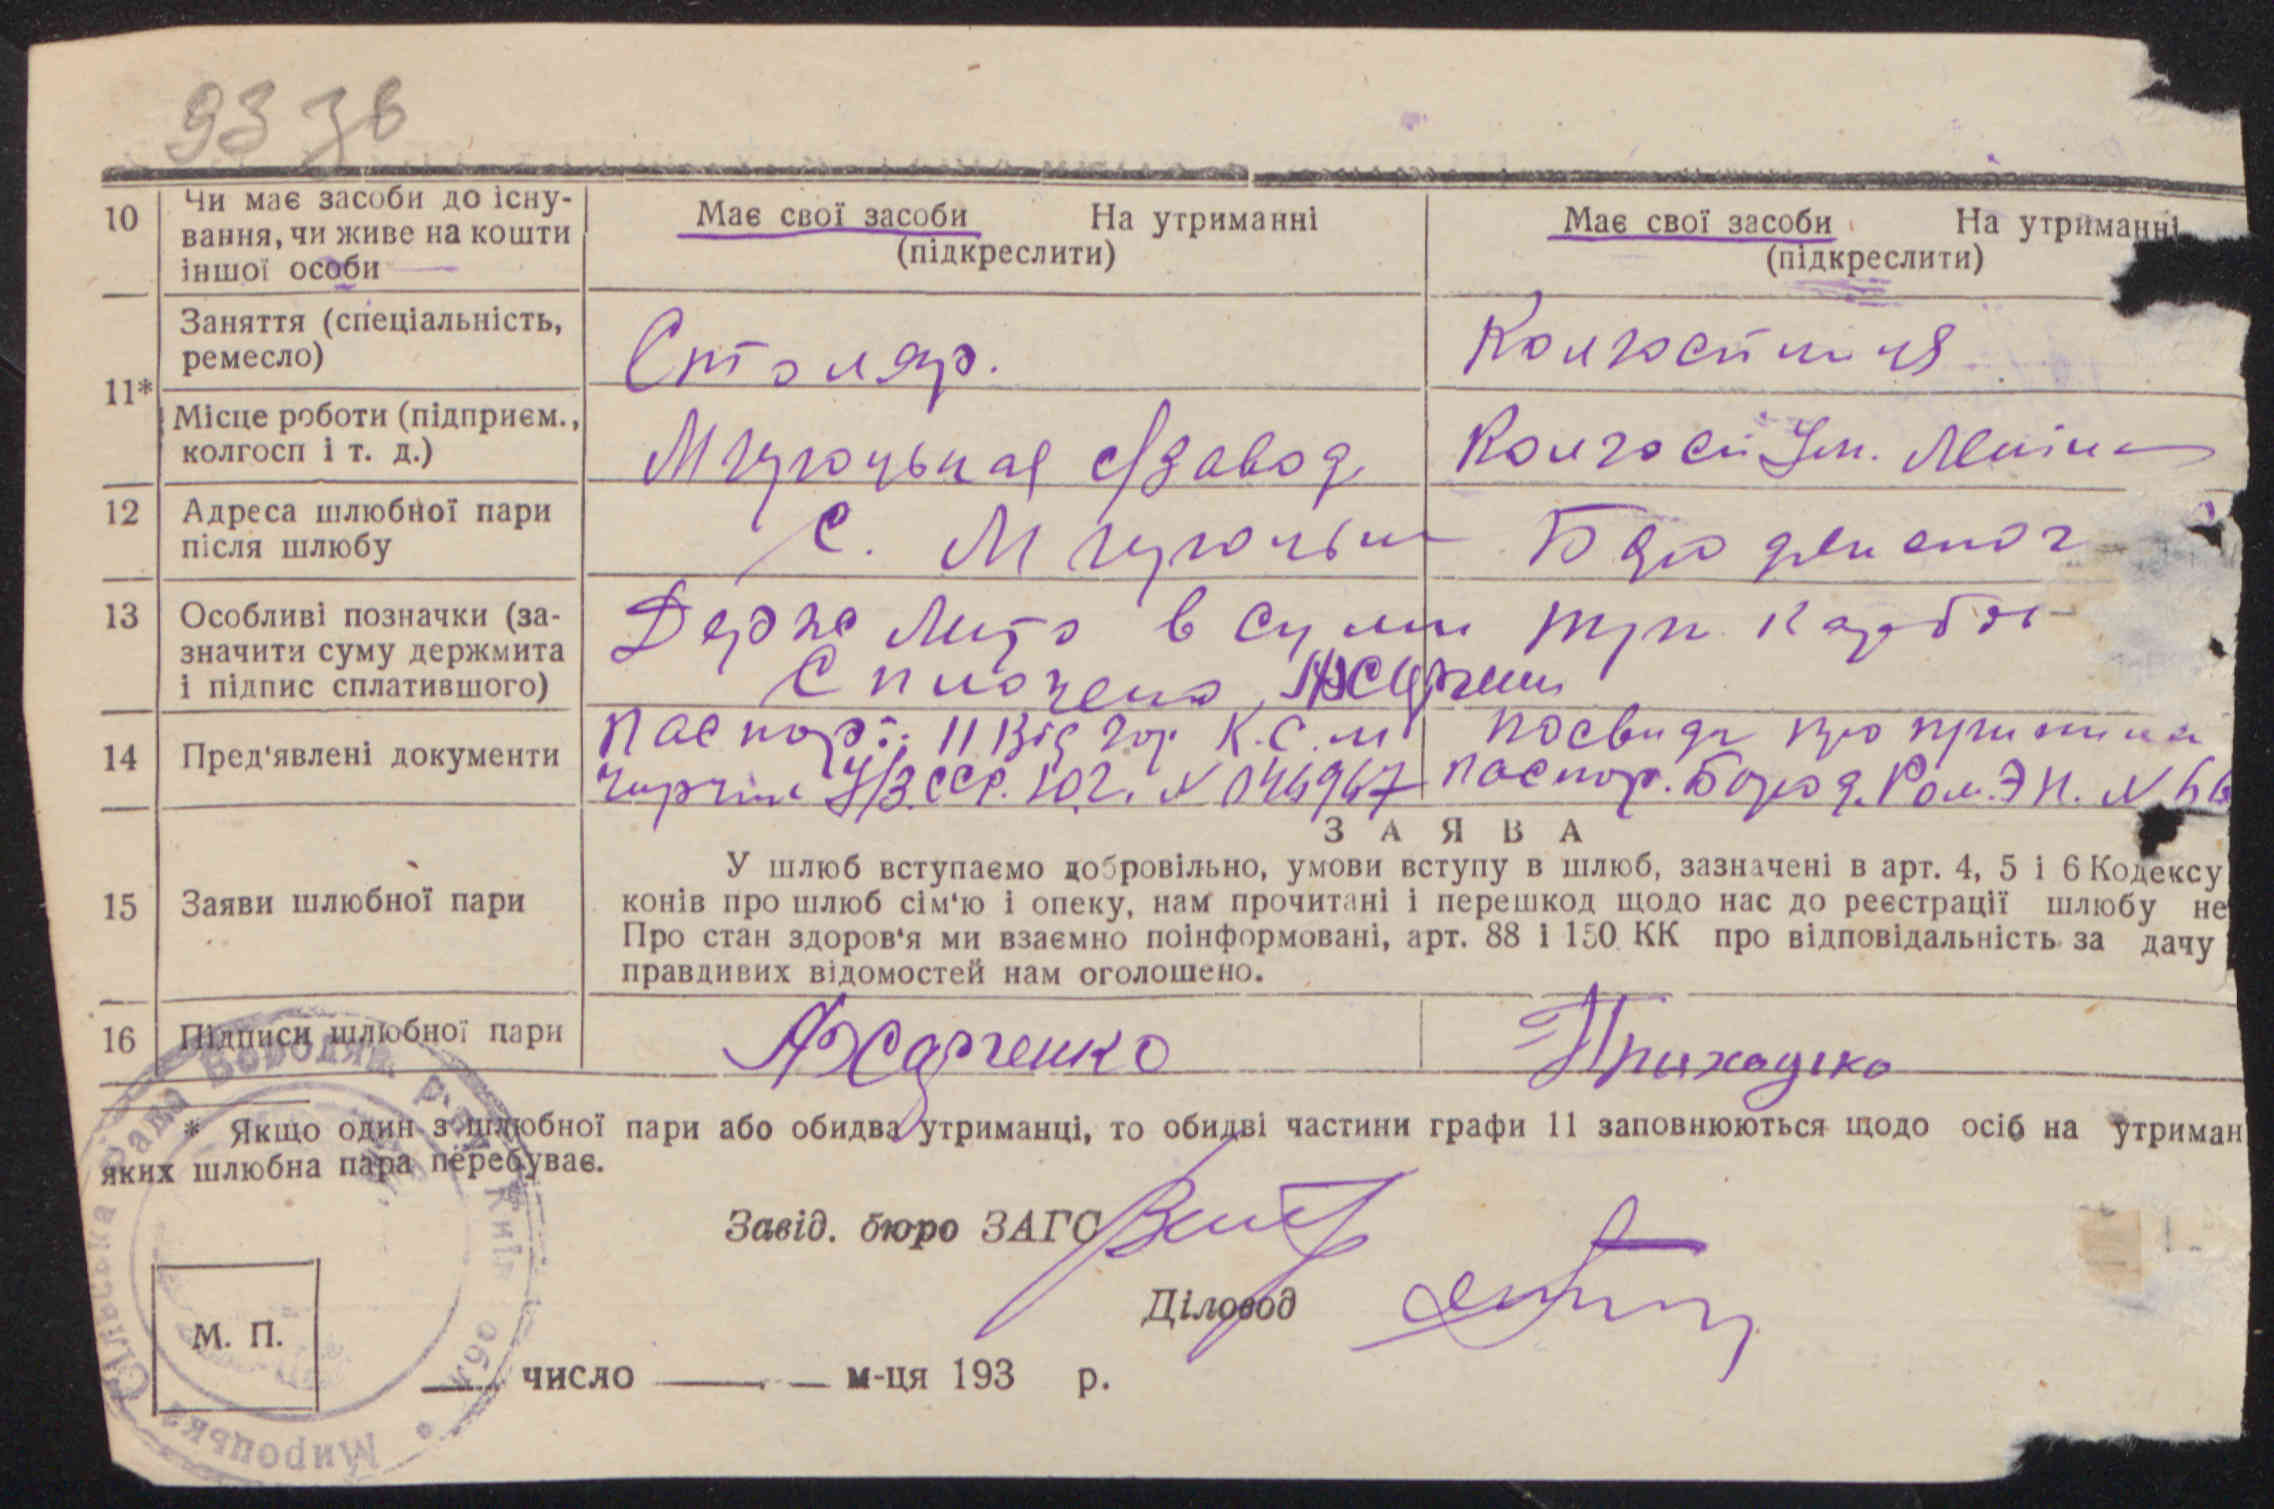 93 зв
10 Чи має засоби до існу-
вання, чи живе на кошти
іншої особи
Має свої засоби На утриманні
(підкреслити)
Має свої засоби На утриманні
(підкреслити)
11*
Заняття (спеціальність,
ремесло)
Столяр.
Колгоспниця
Місце роботи (підприєм.,
колгосп і т. д.)
завод
Колгосп Ім. Леніна
12 Адреса шлюбної пари
після шлюбу
С.
13 Особливі позначки (за-
значити суму держмита
і підпис сплатившого)
Держ Мито в сумі три карбо
Сплочено
14 Пред'явлені документи
Паспорт. II Від гор К.С.М
Чирчик УзССР. № 046967
посвидк про
паспор. Бород. Ром. ЭН. №
15 Заяви шлюбної пари
ЗАЯВА
У шлюб вступаємо добровільно, умови вступу в шлюб, зазначені в арт. 4, 5 і 6 Кодексу
конів про шлюб сім'ю і опеку, нам прочитані і перешкод щодо нас до реєстрації шлюбу не
Про стан здоров'я ми взаємно поінформовані, арт. 88 і 150 КК про відповідальність за дачу
правдивих відомостей нам оголошено.
16 Підписи шлюбної пари
Приходько
* Якщо один з шлюбної пари або обидва утриманці, то обидві частини графи 11 заповнюються щодо осіб на утриман
яких шлюбна пара перебуває.
Завід. бюро ЗАГС
Діловод
М. П.
число м-ця 193 р.
Мироцька Сільська Рада Бородян. Р-ну Київ обл.